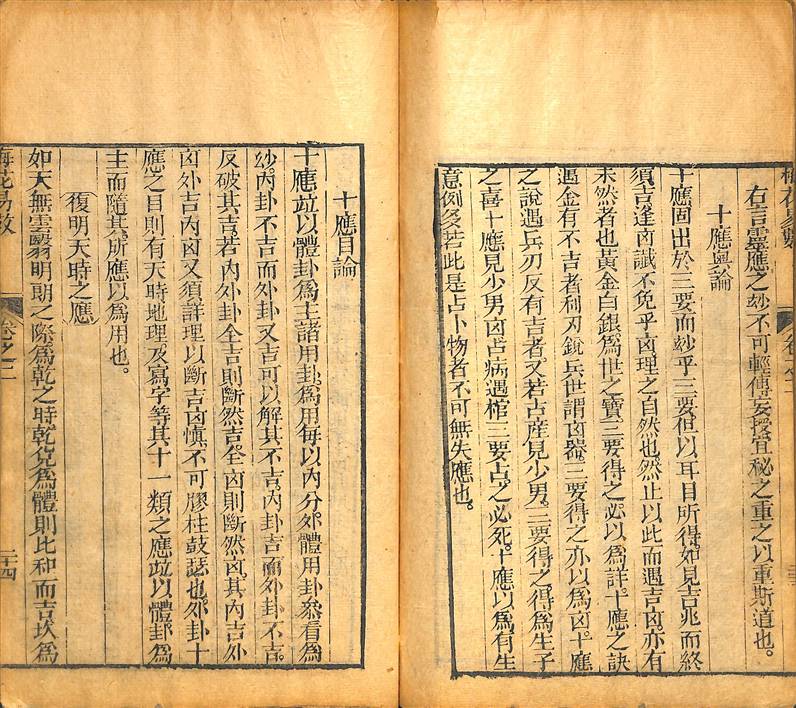 右言靈應之玅不可輕傳妄授宜秘之重之以重斯道也。
十應奧論
十應固出於三要而玅乎三要但以耳目所得如見吉兆而終
須吉逢凶讖不免乎凶理之自然也然止以此而遇吉凶亦有
未然者也黃金白銀爲世之寶三要得之必以爲詳十應之訣
遇金有不吉者利刃銳兵世謂凶器三要得之亦以爲凶十應
之說遇兵刃反有吉者又若占産見少男三要得之得爲生子
之喜十應見少男凶占病遇棺三要占之必死。十應以爲有生
意例多若此是占卜物者不可無失應也。
十應目論
十應竝以體卦爲主諸用卦爲用每以內分外體用卦叅看爲
玅內卦不吉而外卦又吉可以解其不吉內卦吉而外卦不吉。
反破其吉若內外卦全吉則斷然吉全凶則斷然凶其內吉外
凶外吉內凶又須詳理以斷吉凶愼不可膠柱鼓瑟也外卦十
應之目則有天時地理及寫字等其十一類之應竝以體卦爲
主而隨其所應以爲用也。
復明天時之應
如天無雲翳明朗之際爲乾之時乾兌爲體則比和而吉坎爲
梅花易數
卷之二
二十四